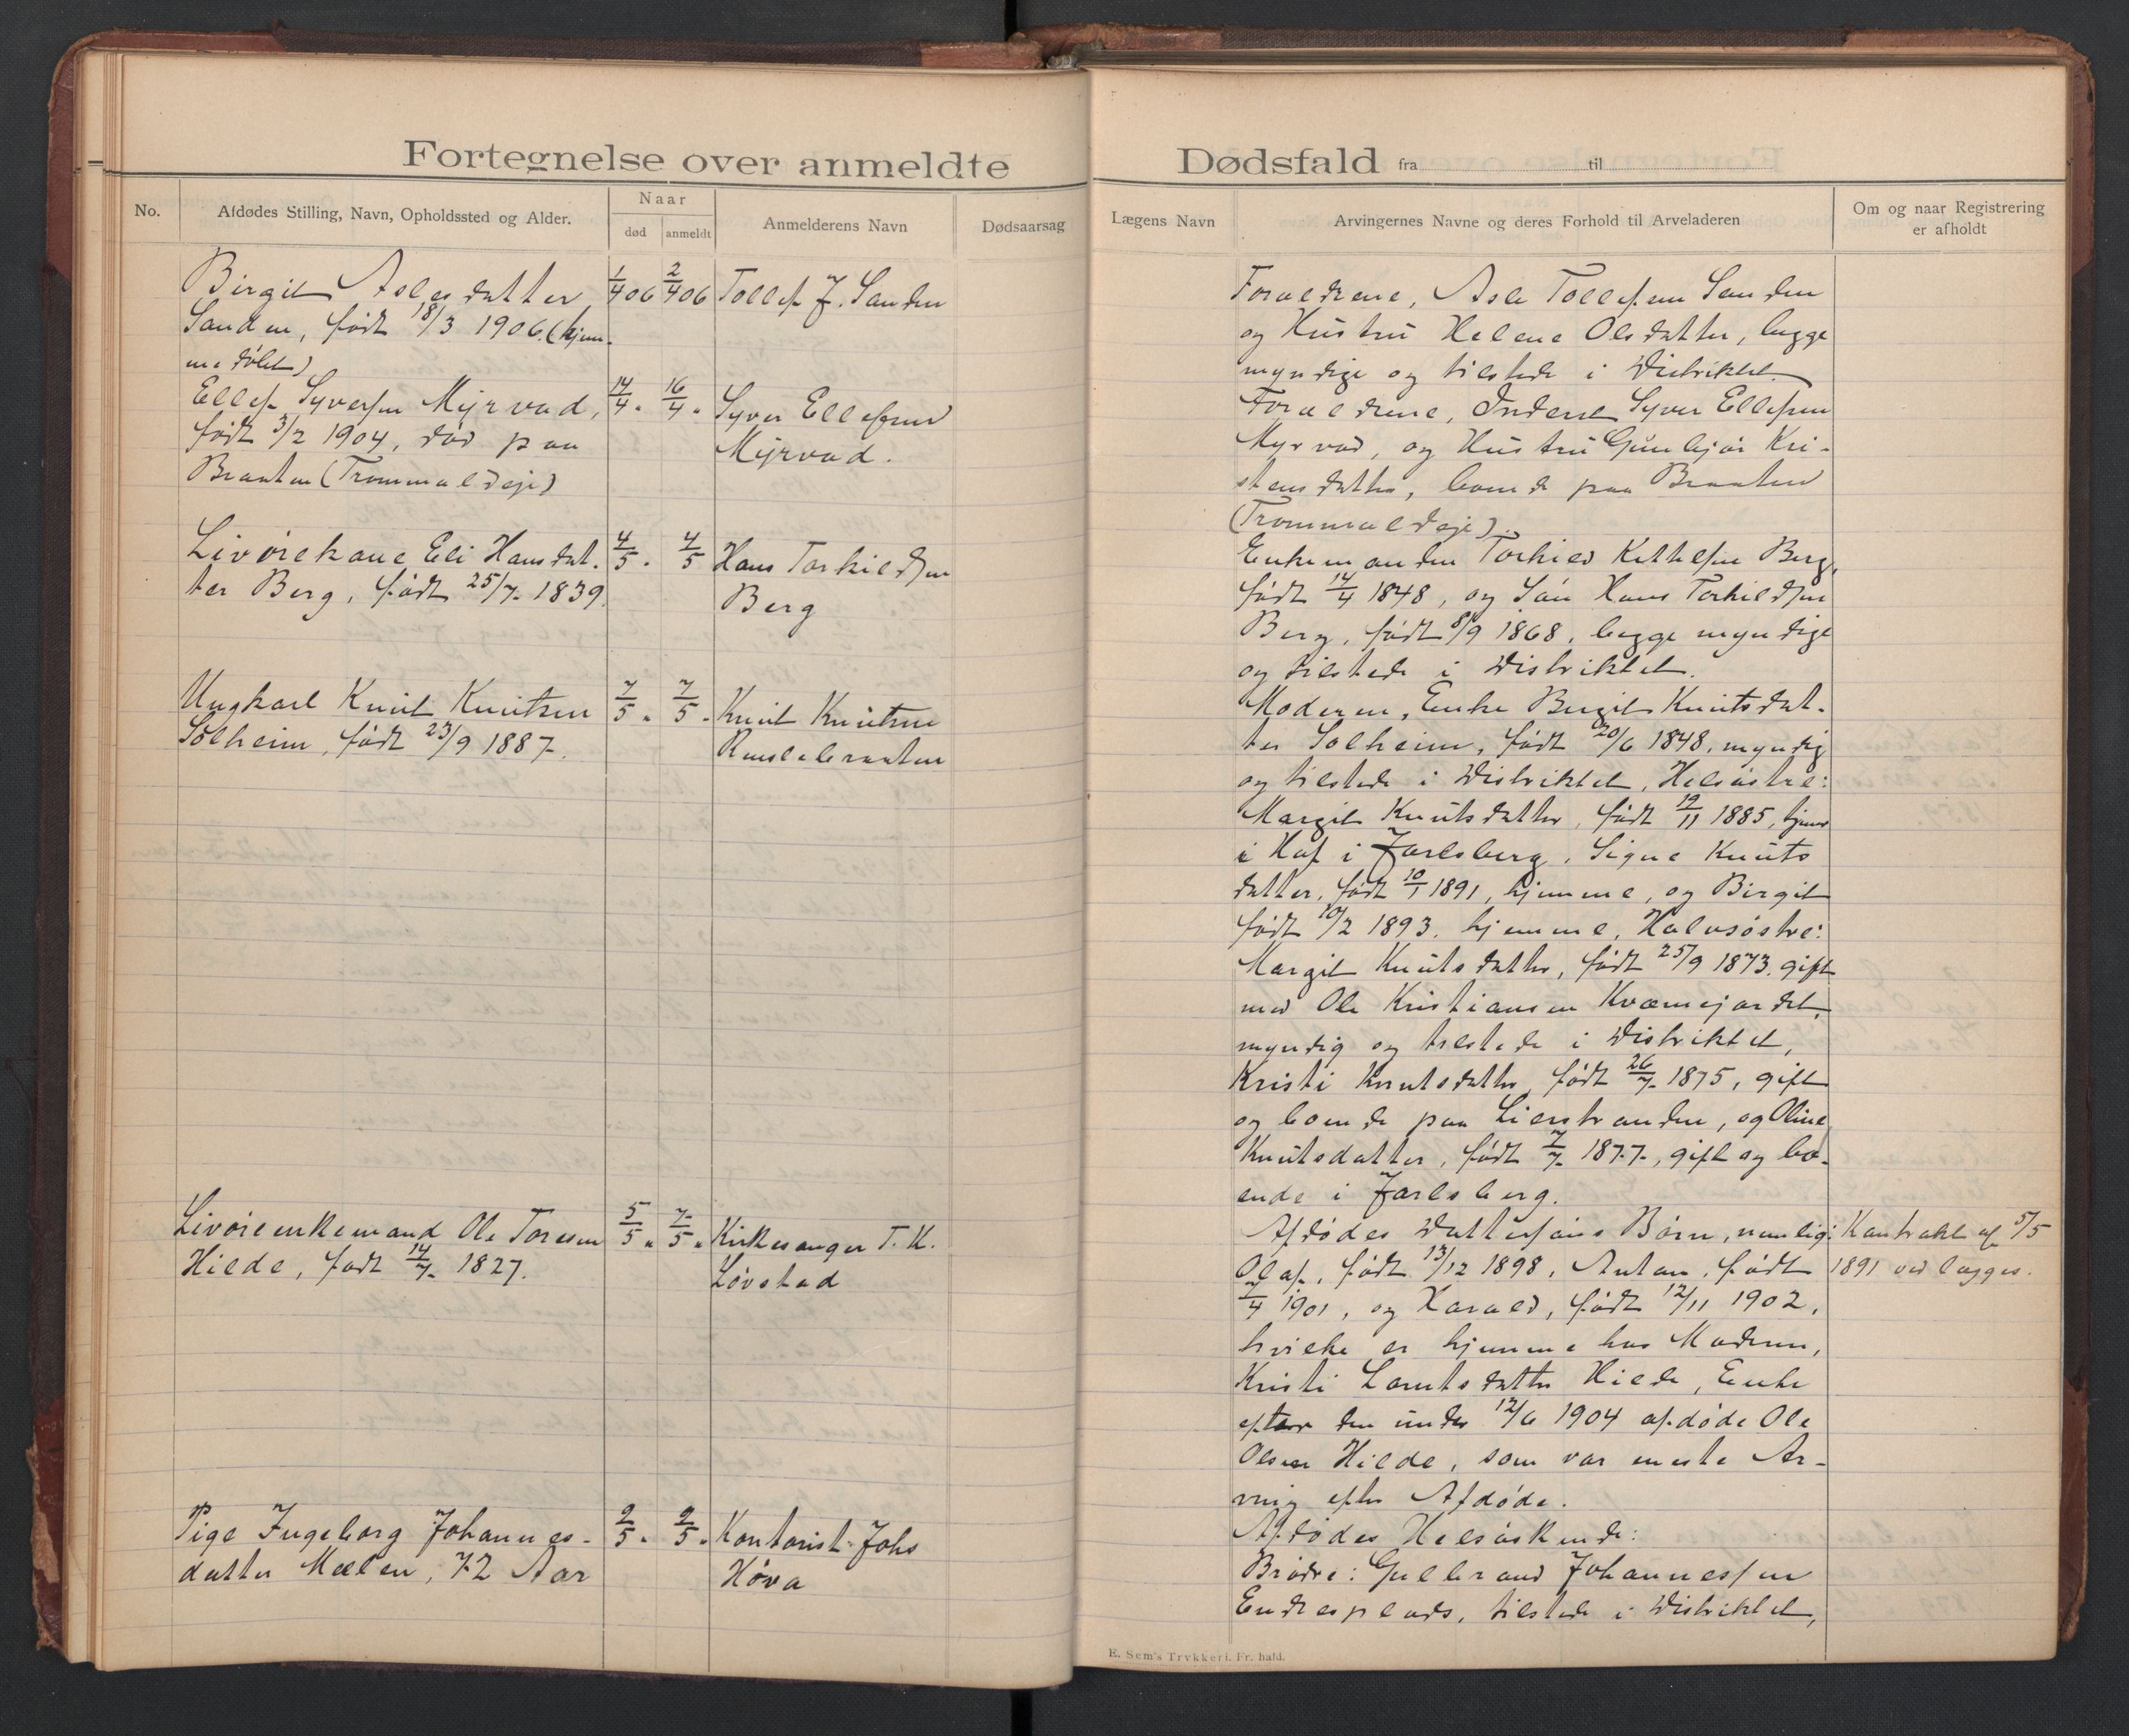 Fortegnelse over anmeldte
No.
Afdødes Stilling, Navn, Opholdssted og Alder.
Naar
død
anmeldt
Anmelderens Navn
Dødsaarsag
Birgit Aslesdatter 1/4 06 2/4 06 Tollef J. Sanden
Sanden, født 18/3 1906. (hjem-
medøbt)
Ellef Syversen Myrvad, 14/4 " 16/4 " Syver Ellefsen
født 3/2 1904, død paa Myrvad.
Braaten (Trommaldeje)
Livørekone Eli Hansdat- 4/5 " 4/5 Hans Torkildsen
ter Berg, født 25/7 1839. Berg
Ungkarl Knut Knutsen 7/5 " 7/5 " Knut Knutsen
Solheim, født 23/9 1887.
Livøreenkemand Ole Toresen 5/5 " 7/5 " Kirkesanger T. K.
Hilde, født 14/7 1827. Løvstad
Pige Ingeborg Johannes- 9/5 " 9/5 " Kontorist Johs
datter Mælen, 72 Aar Høva
Dødsfald fra til
Lægens Navn
Arvingernes Navne og deres Forhold til Arveladeren
Om og naar Registrering
er afholdt
Forældrene, Asle Tollefsen Sanden
og Hustru Helene Olsdatter, begge
myndige og tilstede i Distriktet.
Forældrene, Inderst Syver Ellefsen
Myrvad, og Hustru Gunbjør Kri-
stensdatter, boende paa Braaten
(Trommaldeje).
Enkemanden Torkild Kittelsen Berg,
født 14/4 1848, og Søn Hans Torkildsen
Berg, født 8/9 1868, begge myndige
og tilstede i Distriktet.
Moderen, Enke Bergit Knutsdat-
ter Solheim, født 20/6 1848, myndig
og tilstede i Distriktet, Helsøstre:
Margit Knutsdatter, født 19/11 1885, tjener
i Hof i Jarlsberg, Signe Knuts
datter, født 10/1 1891, hjemme, og Birgit
født 10/2 1893. hjemme, Halvsøstre:
Margit Knutsdatter, født 25/9 1873. gift
med Ole Kristiansen Kværnejordet,
myndig og tilstede i Distriktet,
Kristi Knutsdatter, født 26/7 1875, gift
og boende paa Lierstranden, og Oline
Knutsdatter, født 7/7 1877, gift og bo-
ende i Jarlsberg.
Afdødes Børn, nemlig: Kontrakt af 5/5
Olaf, født 13/12 1898, Anton, født 1891 vedlægges.
7/4 1901, og Harald, født 12/11 1902,
hvilke er hjemme hos Moderen,
Kristi Larsdatter Hilde, Enke
efter den under 12/6 1904 afdøde Ole
Olsen Hilde, som var eneste Ar-
ving efter Afdøde.
Afdødes Helsøskende:
Brødre: Gulbrand Johannessen
Endresplads, tilstede i Distriktet,
E. Sem's Trykkeri. Fr. hald.